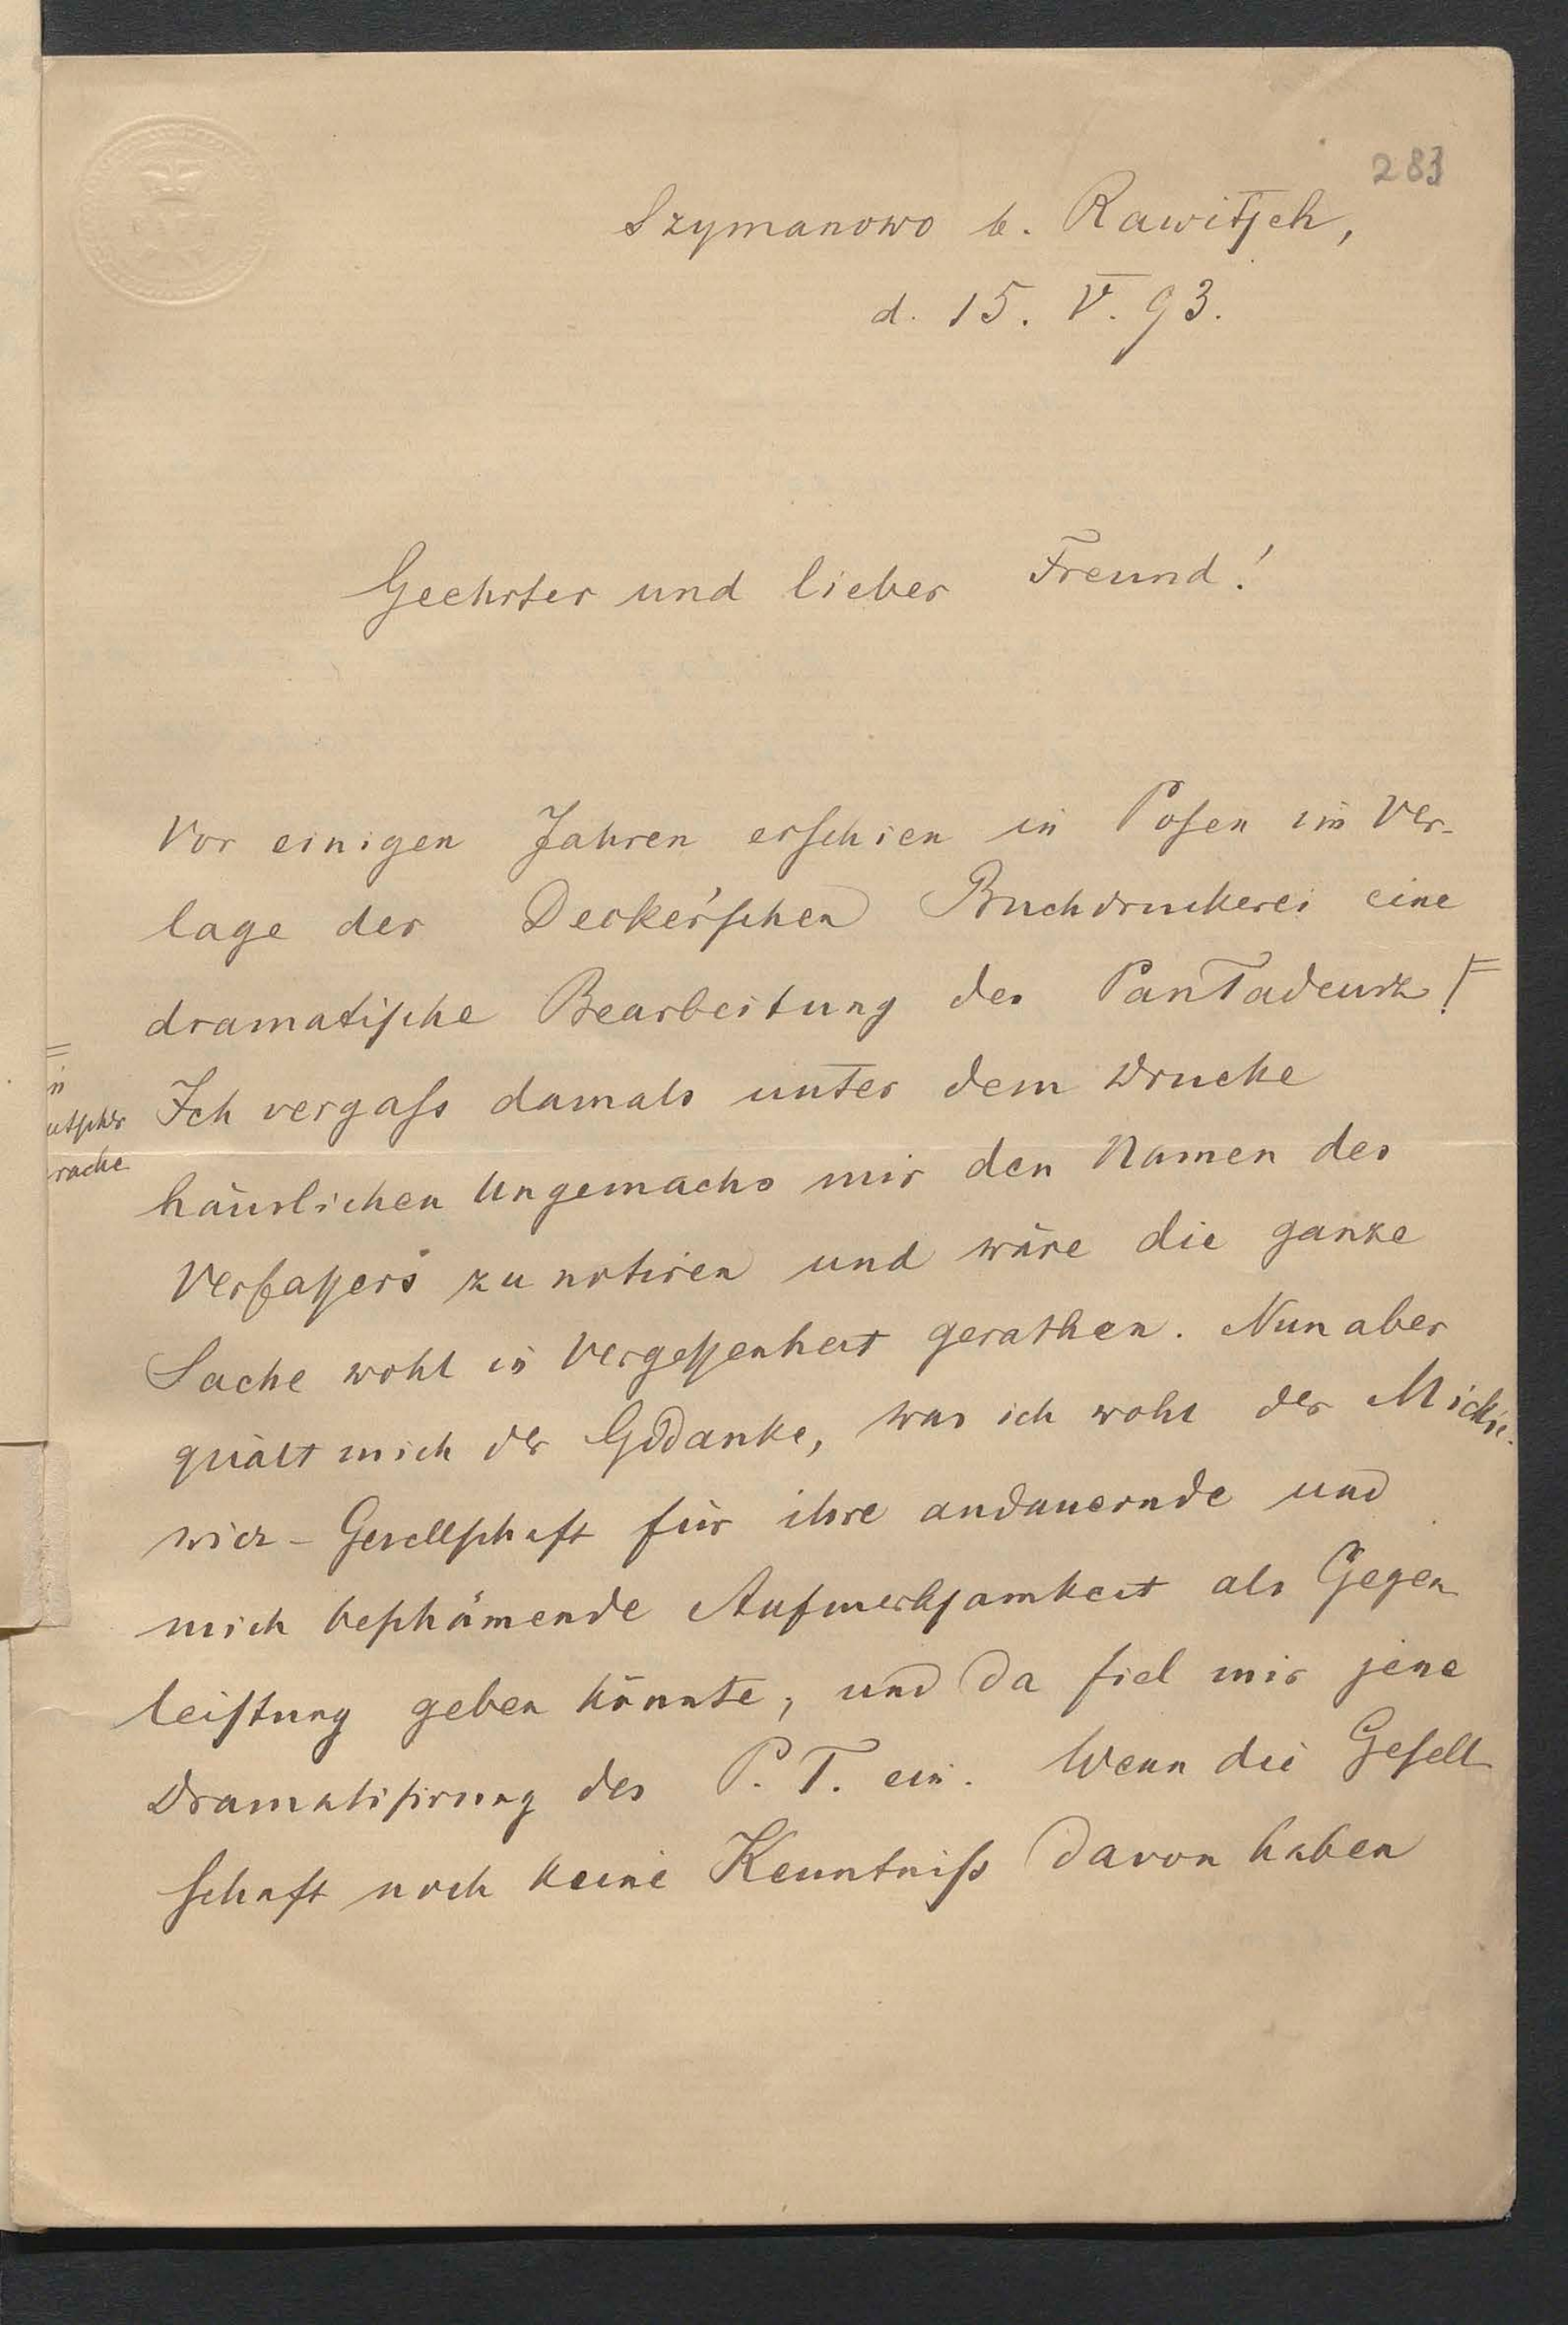 283
Szymanowo b. Rawitsch,
d. 15. V. 93.
Geehrter und lieber Freund!
Vor einigen Jahren erschien in Posen im Ver-
lage der Decker'schen Buchdruckerei eine
dramatische Bearbeitung des Pan Tadeusz!
Ich vergass damals unter dem Drucke
häuslichen Ungemachs mir den Namen des
Verfassers zu notiren und wäre die ganze
Sache wohl in Vergessenheit gerathen. Nun aber
quält mich der Gedanke, was ich wohl der Mickie-
wicz-Gesellschaft für ihre andauernde und
mich beschämende Aufmerksamkeit als Gegen
leistung geben könnte, und da fiel mir jene
Dramatisirung des P. T. ein. Wenn die Gesell
schaft noch keine Kenntniss davon haben
n
utscher
rache